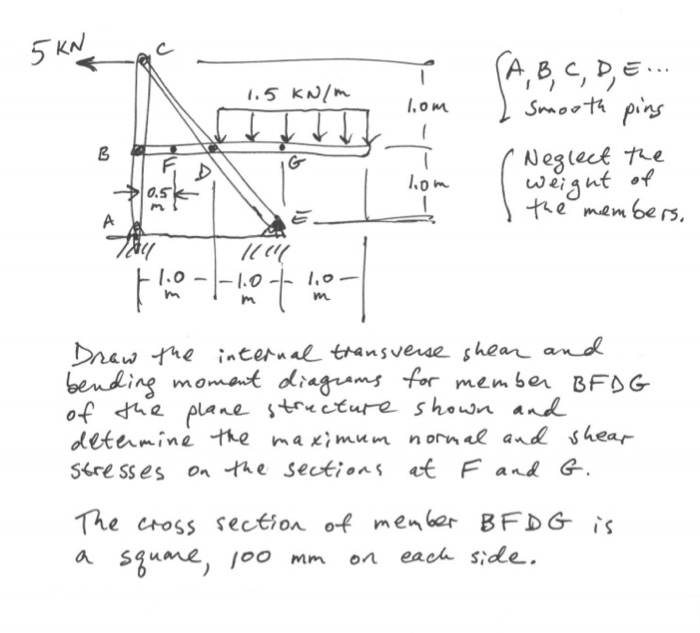 5 KN
C
1.5 KN/m
1.0 m
B
F
D
G
0.5 m
1.0 m
A
E
1.0 m
1.0 m
1.0 m
A, B, C, D, E ...
smooth pins
Neglect the
weight of
the members.
Draw the internal transverse shear and
bending moment diagrams for member BFDG
of the plane structure shown and
determine the maximum normal and shear
stresses on the sections at F and G.
The cross section of member BFDG is
a square, 100 mm on each side.